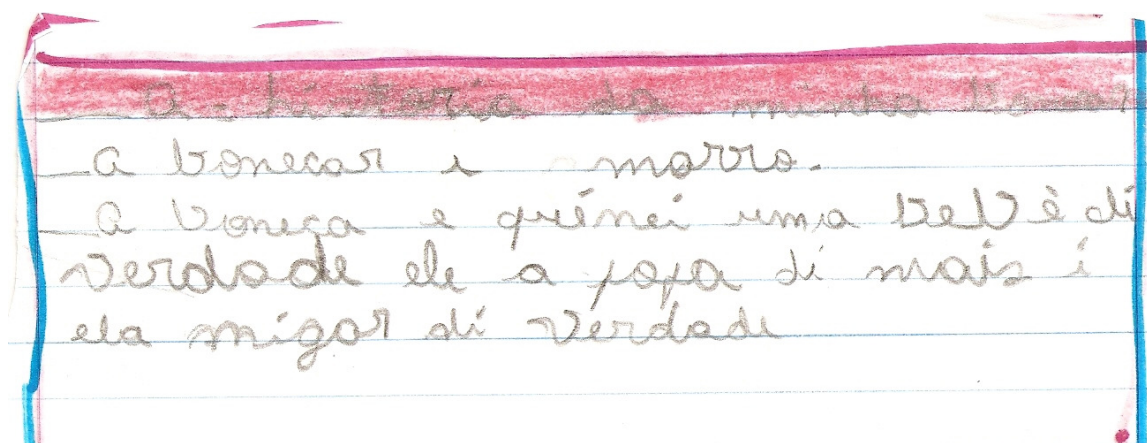 A historia da minha
A bonecar i morro.
A boneca e quénei uma bebê di
verdade ele a fofa di mais i
ela migar di verdade